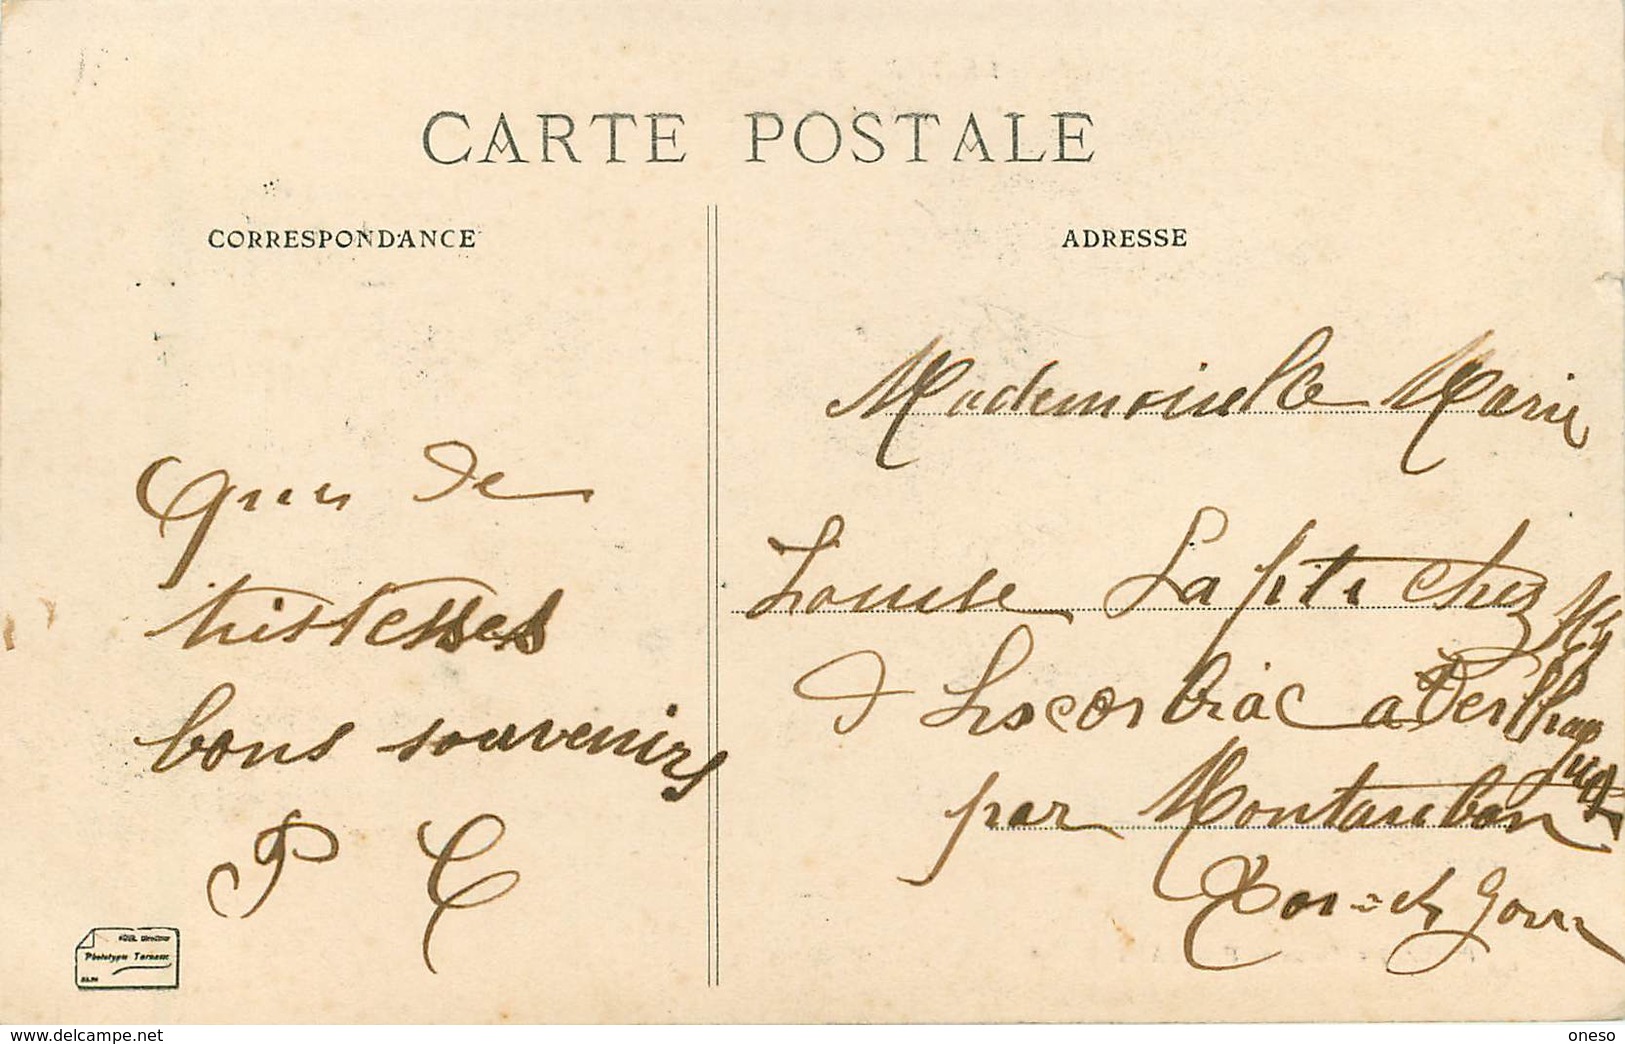 CARTE POSTALE
CORRESPONDANCE
ADRESSE
que de
tristesses
bons souvenirs
P C
Mademoiselle Marie
Louise chez Mr
d Lescorbiac a
par Montauban
Tar-et-Gar
Phototypie Tarnaise
delcampe.net
oneso